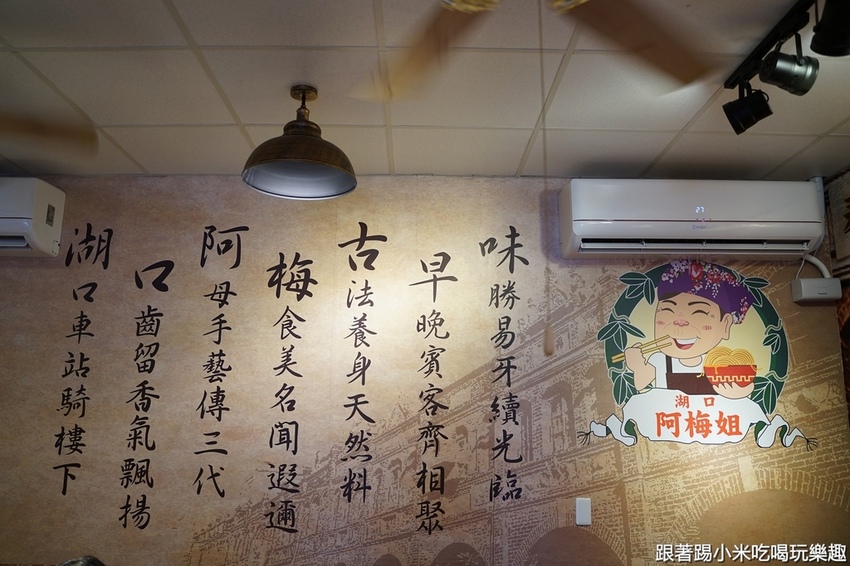 湖口車站騎樓下
口齒留香氣飄揚
阿母手藝傳三代
梅食美名聞遐邇
古法養身天然料
早晚賓客齊相聚
味勝易牙續光臨
湖口
阿梅姐
跟著踢小米吃喝玩樂趣